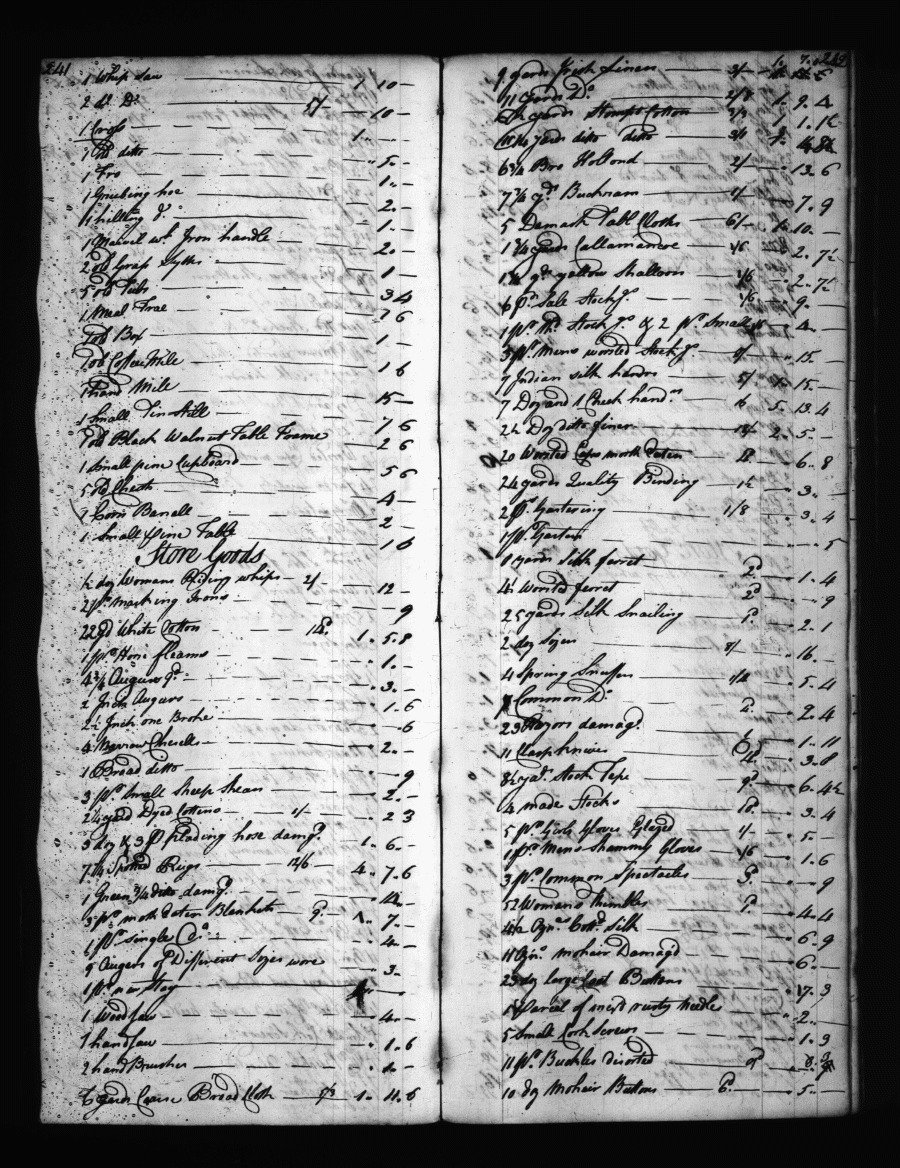 241
1 Whip Saw 1 10 -
2 old Do 5/- - 10 -
1
1 old ditto " 5 -
1 Fro 1 -
1 Grubing hoe 2 -
1 hilling Do 1 -
1 wt. Iron handle 2 -
2 old Grass Sythes 1 -
5 old 3 4
1 Meal 2 6
1 old Box 1 -
1 old Coffee Mile 1 6
1 hand Mile 15 -
1 Small Tin Still 7 6
1 old Black Walnut Table Frame 2 6
1 Small pine Cupboard 5 6
5 old 4 -
1 Corn Barrell 2 -
1 Small pine Table 1 6
Store Goods
½ doz Womans Riding whips 2/- 12 -
2 pr. marking Irons 9
22 yd White Cotton 1. 5. 8
1 pr. Horse fleams " 1. -
4 ¾ Augurs " 3. -
2 Inch Augurs " 1. 6
2 Inch one Broke " - 6
4 Barrow Chisells " 2. -
1 Broad ditto " 9
3 pr. Small Sheep Shears " 2. -
2¼ yard Dyed Cottons 1/- " 2 3
3 doz & 3 pr plading hose damgd. 1. 6. -
7 ¼ Spotted Rugs 12/6 4. 7. 6
1 Green ¾ ditto damgd.
3 pr moth Eaten Blankets 9. 7. -
1 pr. single Do " 4. -
9 Augers of Different Sizes wore " 3. -
1 pr.
1 Wood Saw 4. -
1 handsaw " 1. 6
2 hand Brushes " 1. -
6 yards Coarse Broad Cloth 5/3 1. 11. 6
242
9 yards Irish linen 3/- 1. 7.
11 yards Do. 2/8 1. 9. 4
yards Stampt Cotton
yards ditto ditto
6¾ Bro Holond 2/- " 13. 6
7¾ yds Buckram 1/- " 7. 9
5 Damask Tabl Cloths 6/- 1. 10. -
1 ¾ yards Callamancoe 1/6 " 2. 7½
1 ¾ yds yellow Shalloon 1/6 " 2. 7½
6 pr. Sale Stockgs. 1/6 " 9. -
1 pr. Stockgs. & 2 pr. Small " 4. -
3 pr. Mens worsted Stockgs. 5/- " 15. -
7 Indian silk handrs 5/ 1. 15. -
7 Doz and 1 Check handrs 5. 13. 4
2½ Doz ditto finer 2. 5. -
20 Worsted Caps moth Eaten " 6. 8
24 yards Quality Binding 1½ " 3. -
2 ps. Gartering 1/8 " 3. 4
1 pr. Garters " 5
8 yards Silk ferret 2d " 1. 4
4½ Worsted ferret 2d " 9
25 yards Silk Snailing 1d " 2. 1
2 doz Sizers 8/ " 16. -
4 Spring Snuffers " 5. 4
Common Do " 2. 4
23 Razors damagd. " 1. 11
11 Clasp knives " 3. 8
8½ yds. Stock Tape 9d " 6. 4½
4 made Stocks 10d " 3. 4
5 pr. Girls Gloves Glazed 1/- " 5. -
1 pr. Mens Shammy Gloves 1/6 " 1. 6
3 pr. Common Spectacles 3d " 9
52 Womans thimbles 1d " 4. 4
Silk " 6. 9
mohair Damagd " 6. -
23 doz large Buttons " 17. 3
1 Parcel of rusty Needles " 2. -
5 Small Cork Screws " 1. 3
11 pr. Buckles disorted 9d
10 doz Mohair Buttons 6d " 5. -